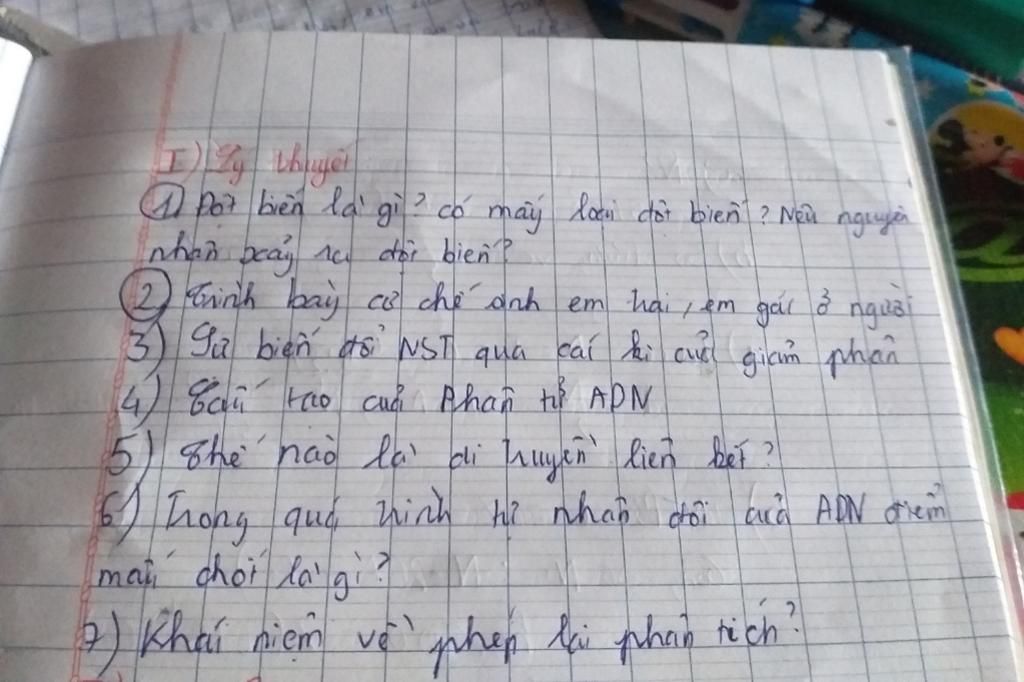 I) Lý thuyết
1) Đột biến là gì? có mấy loại đột biến? Nêu nguyên
nhân xảy ra đột biến?
2) Trình bày cơ chế sinh con trai, con gái ở người
3) Sự biến đổi NST qua các kì của giảm phân
4) Cấu tạo của Phân tử ADN
5) Thế nào là di truyền liên kết?
6) Trong quá trình tự nhân đôi của ADN điểm
mấu chốt là gì?
7) Khái niệm về phép lai phân tích?